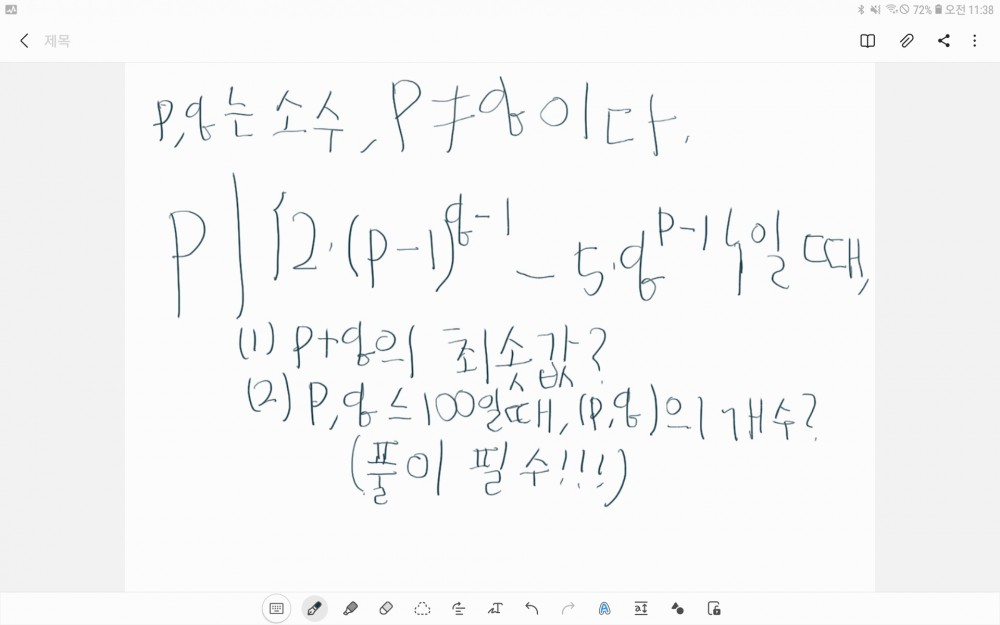 72% 오전 11:38
제목
P,q는 소수, P≠q이다.
P|{2·(P-1)^{q-1} - 5·q^{P-1}}일 때,
(1) P+q의 최솟값?
(2) P,q≤100일때, (P,q)의 개수?
(풀이 필수!!!)